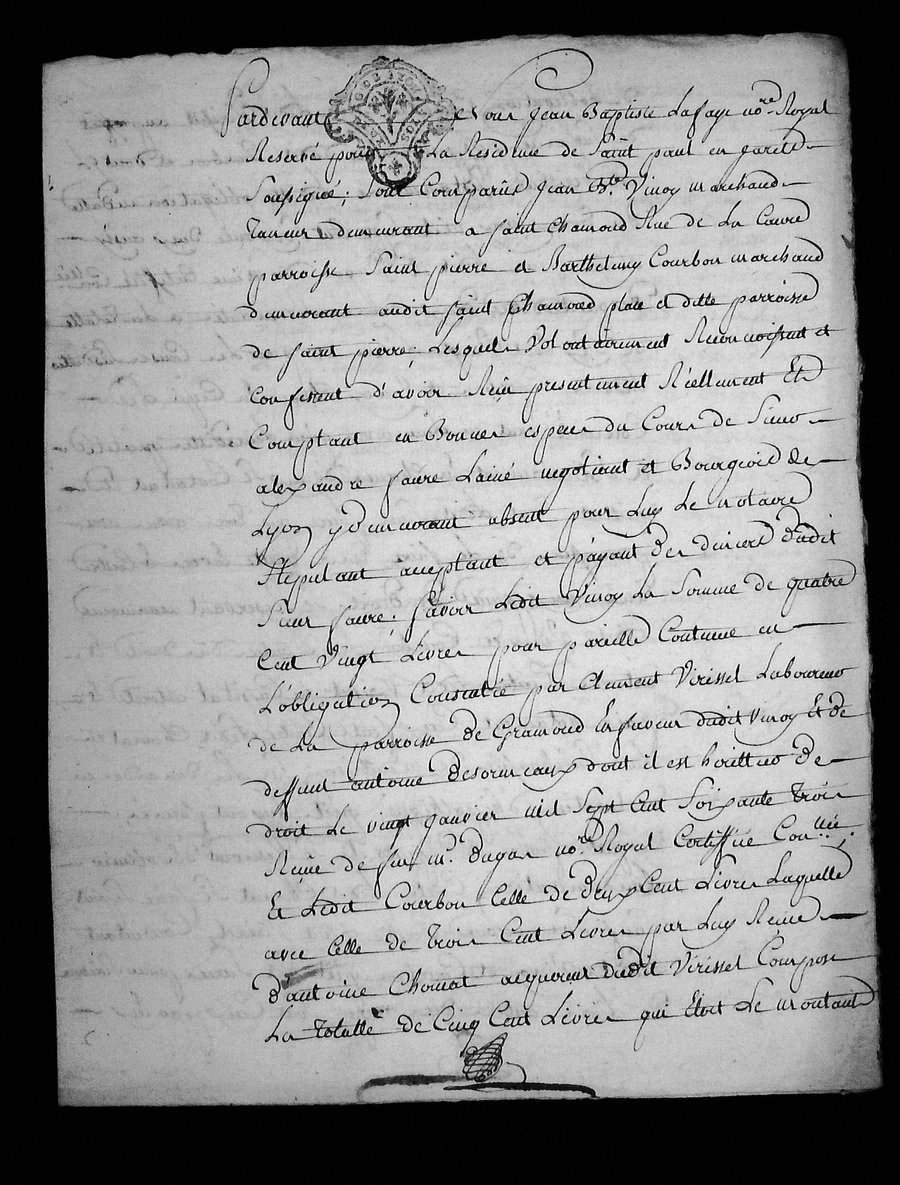 Pardevant Nous Jean Baptiste Lafay no.re Royal
Reservé pour La Residence de Saint paul en jarest
Soussigné; Sont Comparûs Jean B.te Vinoy marchand
Taneur demeurant a Saint Chamond Rue de La
parroisse Saint pierre et Barthelemy Courbon marchand
demeurant audit Saint Chamond place et ditte parroisse
de Saint pierre; Lesquels Volontairement Reconnoissent et
Confessent d'avoir Reçu presentement Réellement Et
Comptant en Bonnes especes du Cours de Sieur
alexandre faure L'ainé negotiant et Bourgeois de
Lyon y demeurant absent pour Luy Le notaire
Stipulant acceptant et payant des deniers dudit
Sieur faure; Savoir Ledit Vinoy La Somme de quatre
Cent Vingt Livres pour pareille Contenue en
L'obligation Consentie par Clement Virissel Laboureur
de La parroisse de Gramond En faveur dudit Vinoy Et de
deffunt antoine desormeaux dont il est heritier de
droit Le vingt janvier mil Sept Cent Soixante Trois
Reçue de feu m.e dugas no.re Royal Certiffiée Con.llée;
Et Ledit Courbon Celle de deux Cent Livres Laquelle
avec Celle de Trois Cent Livres par Luy Reçue
d'antoine Chomat acquereur dudit Virissel Compose
La Totalle de Cinq Cent Livres qui Etoit Le montant